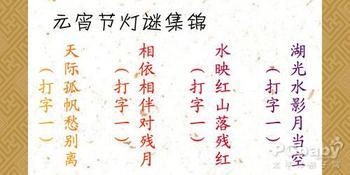 元宵节灯谜集锦
湖光水影月当空
（打字一）
水映红山落残红
（打字一）
相依相伴对残月
（打字一）
天际孤帆愁别离
（打字一）
PCbaby